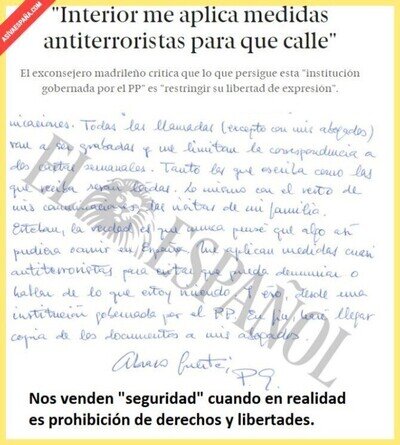 ASIVAESPAÑA.COM
"Interior me aplica medidas
antiterroristas para que calle"
El exconsejero madrileño critica que lo que persigue esta "institución
gobernada por el PP" es "restringir su libertad de expresión".
nicaciones. Todas las llamadas (excepto con mis abogados)
van a ser grabadas y me limitan la correspondencia a
dos cartas semanales. Tanto las que escriba como las
que reciba serán leídas. Lo mismo con el resto de
mis comunicaciones, las visitas de mi familia.
Esteban, la verdad es que nunca pensé que algo así
pudiera ocurrir en España. Me aplican medidas cuasi
antiterroristas para evitar que pueda denunciar o
hablar de lo que estoy viviendo. Y eso, desde una
institución gobernada por el PP. En fin, haré llegar
copia de los documentos a mis abogados.
EL ESPAÑOL
Nos venden "seguridad" cuando en realidad
es prohibición de derechos y libertades.